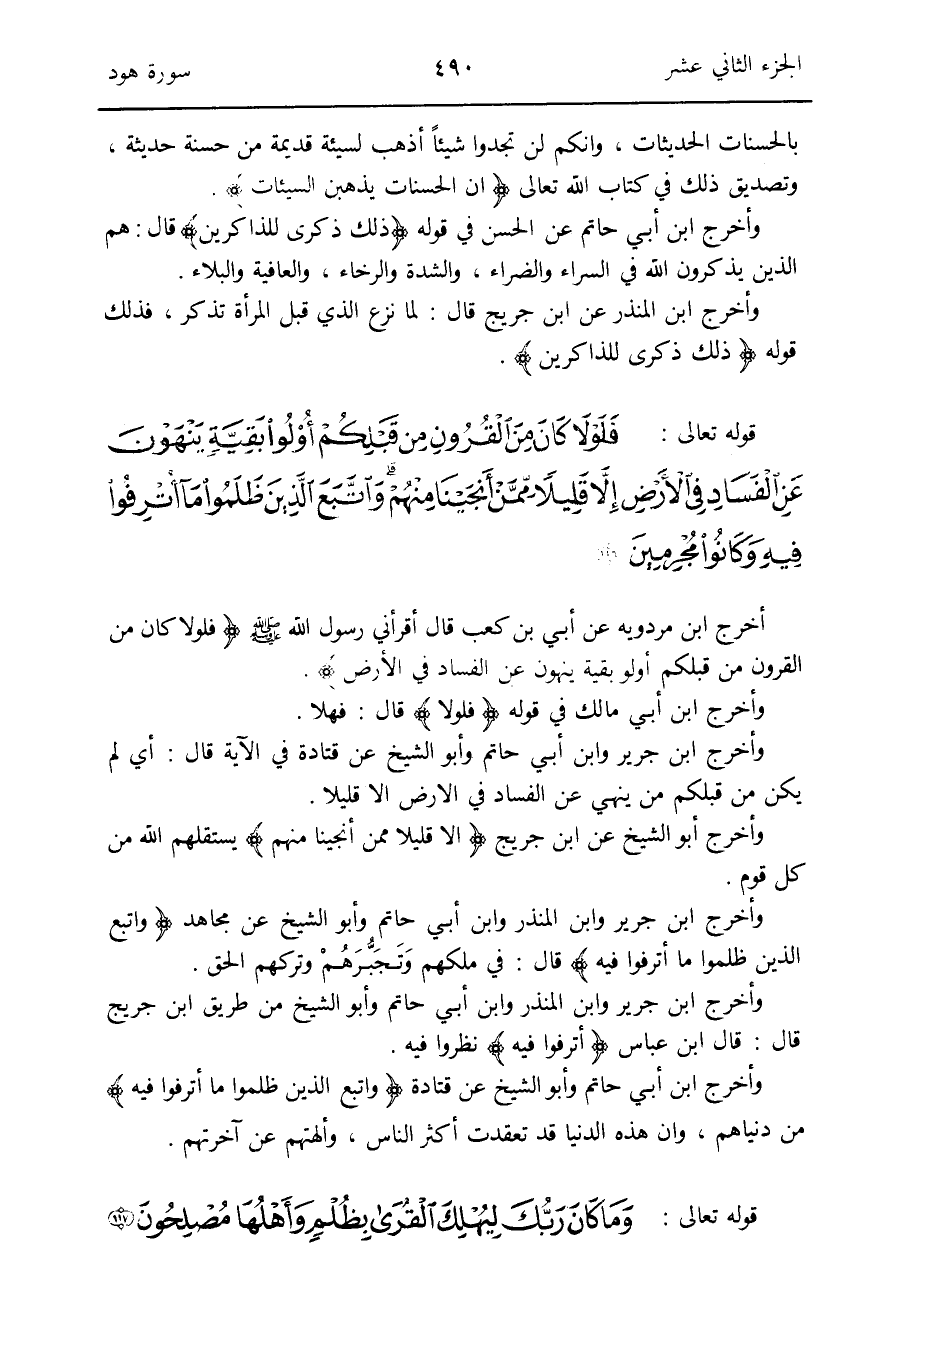 الجزء الثاني عشر ٤٩٠ سورة هود
بالحسنات الحديثات ، وانكم لن تجدوا شيئاً أذهب لسيئة قديمة من حسنة حديثة ،
وتصديق ذلك في كتاب الله تعالى ﴿ ان الحسنات يذهبن السيئات ﴾ .
وأخرج ابن أبي حاتم عن الحسن في قوله ﴿ذلك ذكرى للذاكرين﴾ قال : هم
الذين يذكرون الله في السراء والضراء ، والشدة والرخاء ، والعافية والبلاء .
وأخرج ابن المنذر عن ابن جريج قال : لما نزع الذي قبل المرأة تذكر ، فذلك
قوله ﴿ ذلك ذكرى للذاكرين ﴾ .
قوله تعالى : فَلَوْلَا كَانَ مِنَ ٱلْقُرُونِ مِن قَبْلِكُمْ أُوْلُوا۟ بَقِيَّةٍ يَنْهَوْنَ
عَنِ ٱلْفَسَادِ فِى ٱلْأَرْضِ إِلَّا قَلِيلًا مِّمَّنْ أَنجَيْنَا مِنْهُمْ ۗ وَٱتَّبَعَ ٱلَّذِينَ ظَلَمُوا۟ مَآ أُتْرِفُوا۟
فِيهِ وَكَانُوا۟ مُجْرِمِينَ ١١٦
أخرج ابن مردويه عن أبي بن كعب قال أقرأني رسول الله ﷺ ﴿ فلولا كان من
القرون من قبلكم أولو بقية ينهون عن الفساد في الأرض ﴾ .
وأخرج ابن أبي مالك في قوله ﴿ فلولا ﴾ قال : فهلا .
وأخرج ابن جرير وابن أبي حاتم وأبو الشيخ عن قتادة في الآية قال : أي لم
يكن من قبلكم من ينهي عن الفساد في الارض الا قليلا .
وأخرج أبو الشيخ عن ابن جريج ﴿ الا قليلا ممن أنجينا منهم ﴾ يستقلهم الله من
كل قوم .
وأخرج ابن جرير وابن المنذر وابن أبي حاتم وأبو الشيخ عن مجاهد ﴿ واتبع
الذين ظلموا ما أترفوا فيه ﴾ قال : في ملكهم وَتَجَبُّرَهُمْ وتركهم الحق .
وأخرج ابن جرير وابن المنذر وابن أبي حاتم وأبو الشيخ من طريق ابن جريج
قال : قال ابن عباس ﴿ أترفوا فيه ﴾ نظروا فيه .
وأخرج ابن أبي حاتم وأبو الشيخ عن قتادة ﴿ واتبع الذين ظلموا ما أترفوا فيه ﴾
من دنياهم ، وان هذه الدنيا قد تعقدت أكثر الناس ، وألهتهم عن آخرتهم .
قوله تعالى : وَمَا كَانَ رَبُّكَ لِيُهْلِكَ ٱلْقُرَىٰ بِظُلْمٍ وَأَهْلُهَا مُصْلِحُونَ ١١٧